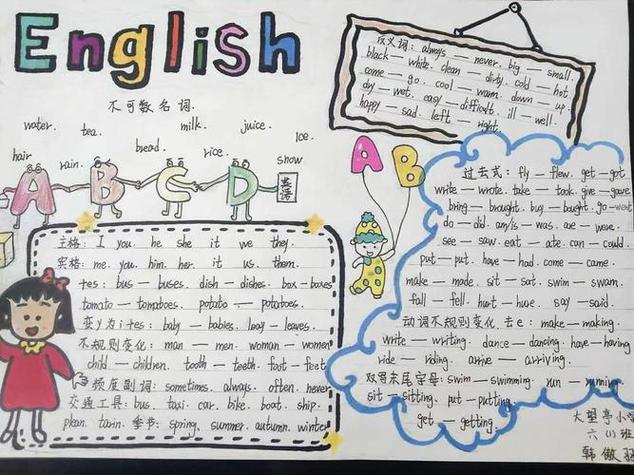 English
不可数名词.
water. tea. milk. juice. Ice.
hair rain. bread. rice. snow
A B C D 英语
主格: I you. he she it we they.
宾格: me. you. him. her. it us. them.
+es: bus — buses. dish — dishes. box — boxes
tomato — tomatoes. potato — potatoes.
变y为ies: baby — babies. leaf — leaves.
不规则变化: man — men. woman — women
child — children. tooth — teeth. foot — feet
频度副词: sometimes. always. often. never
交通工具: bus. taxi. car. bike. boat. ship.
季节: spring. summer. autumn. winter
反义词: always — never. big — small.
black — white. clean — dirty. cold — hot
come — go. cool — warm. down — up.
dry — wet. easy — difficult. ill — well.
happy — sad. left — right.
A B
过去式: fly — flew. get — got
write — wrote. take — took. give — gave
bring — brought. buy — bought. go — went
do — did. am/is — was. are — were.
see — saw. eat — ate. can — could.
put — put. have — had. come — came.
make — made. sit — sat. swim — swam.
fall — fell. hurt — hue. say — said.
动词不规则变化. 去e: make — making.
write — writing. dance — dancing. have — having
ride — riding. arrive — arriving.
双写末尾字母: swim — swimming. run — running
sit — sitting. put — putting.
get — getting
大望亭小学
班
韩傲